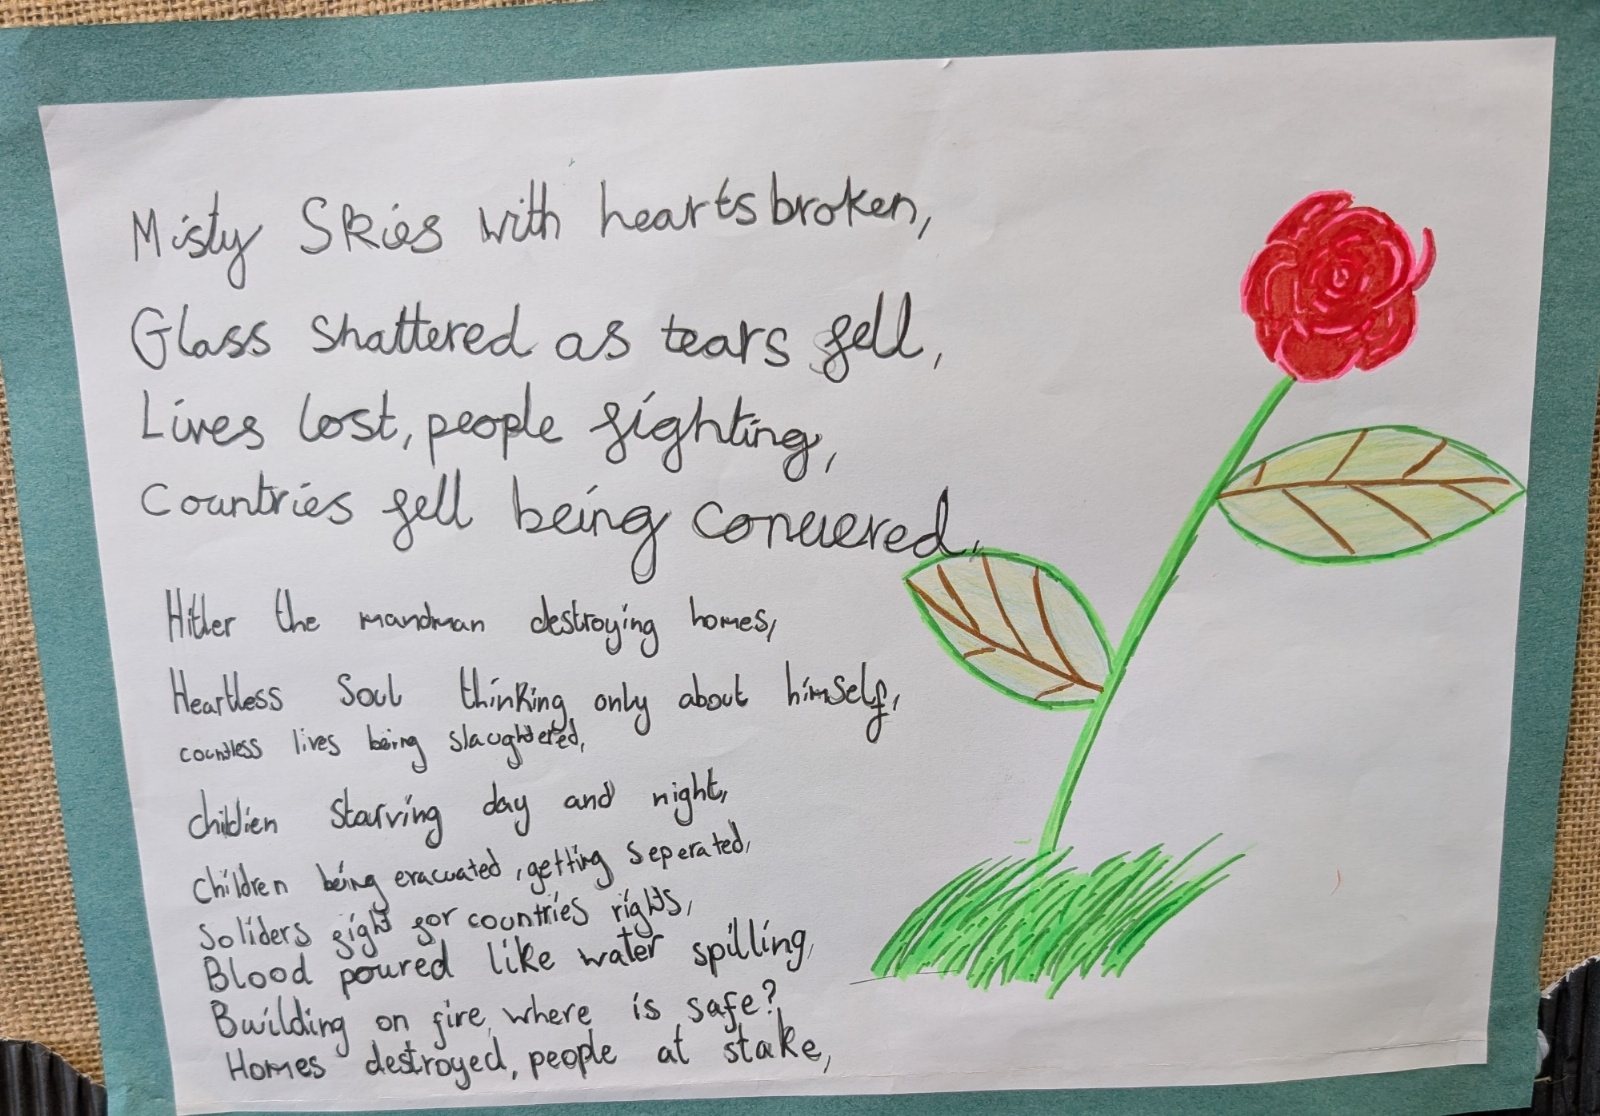 Misty Skies with hearts broken,
Glass shattered as tears fell,
Lives lost, people fighting,
Countries fell being conuered,
Hitler the mandman destroying homes,
Heartless Soul thinking only about himself,
countless lives being slaughtered,
children starving day and night,
children being evacuated, getting seperated,
Soliders fight for countries rights,
Blood poured like water spilling,
Building on fire, where is safe?
Homes destroyed, people at stake,